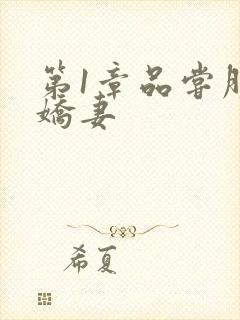 第1章品尝
娇妻
希夏